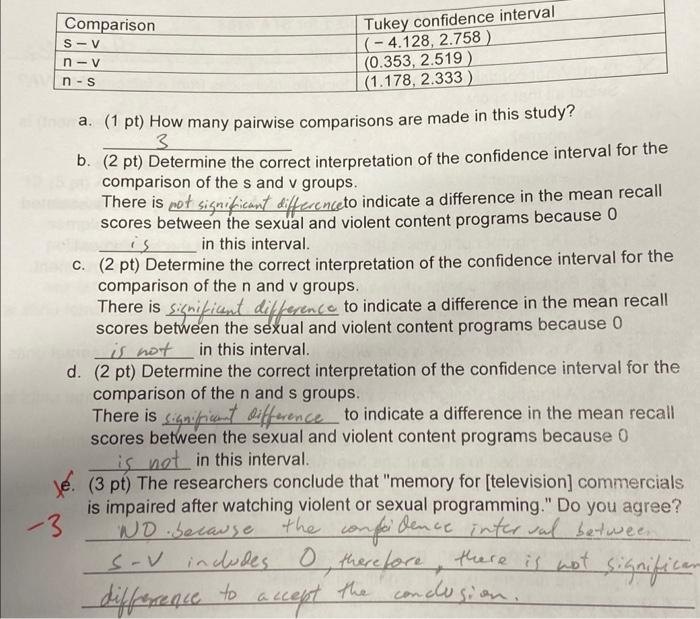 Comparison Tukey confidence interval
s – v (– 4.128, 2.758 )
n – v (0.353, 2.519 )
n - s (1.178, 2.333 )
a. (1 pt) How many pairwise comparisons are made in this study?
3
b. (2 pt) Determine the correct interpretation of the confidence interval for the
comparison of the s and v groups.
There is not significant difference to indicate a difference in the mean recall
scores between the sexual and violent content programs because 0
is in this interval.
c. (2 pt) Determine the correct interpretation of the confidence interval for the
comparison of the n and v groups.
There is significant difference to indicate a difference in the mean recall
scores between the sexual and violent content programs because 0
is not in this interval.
d. (2 pt) Determine the correct interpretation of the confidence interval for the
comparison of the n and s groups.
There is significant difference to indicate a difference in the mean recall
scores between the sexual and violent content programs because 0
is not in this interval.
e. (3 pt) The researchers conclude that "memory for [television] commercials
is impaired after watching violent or sexual programming." Do you agree?
-3 NO. because the confidence interval between
s-v includes 0, therefore, there is not significan
difference to accept the conclusion.